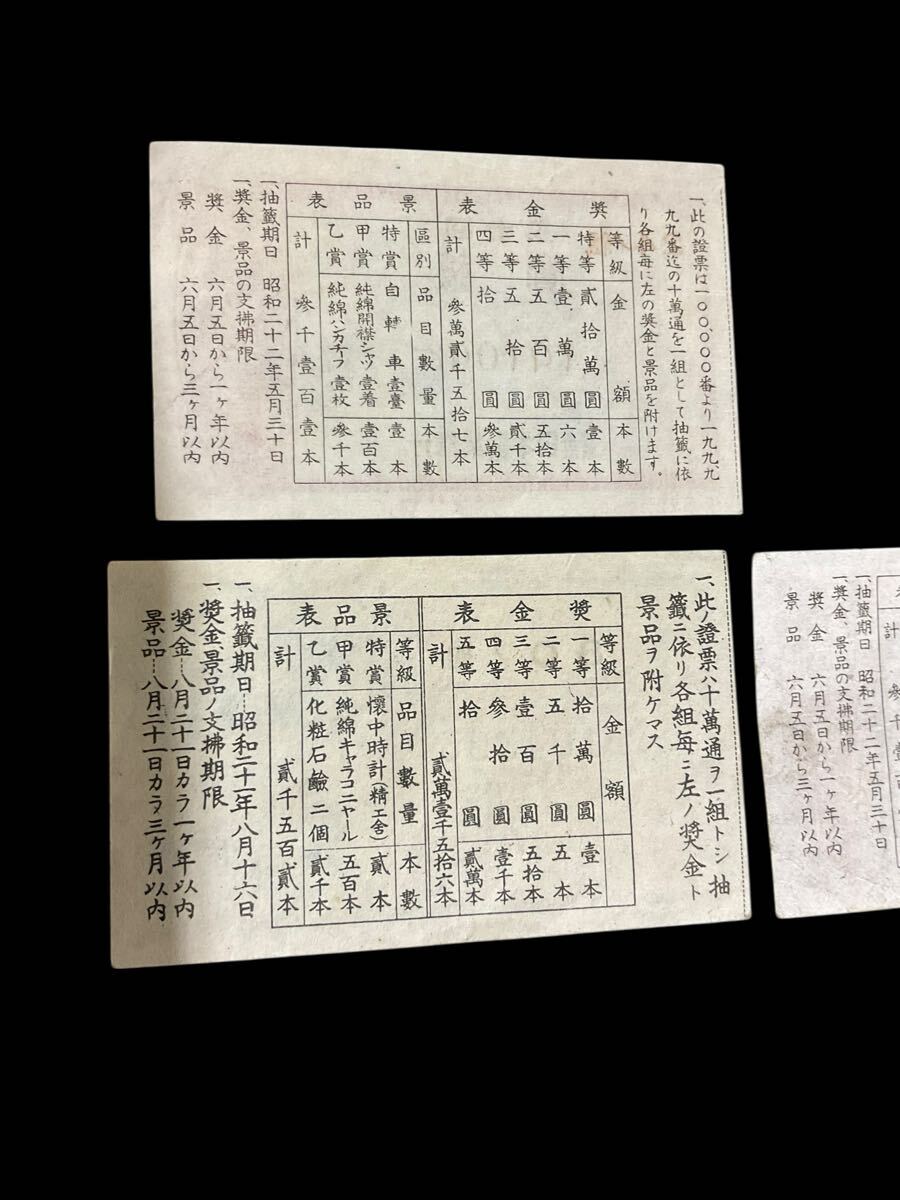 一、此の證票は一〇〇、〇〇〇番より一九九、九
九九番迄の十萬通を一組として抽籤に依
り各組每に左の獎金と景品を附けます。
獎金表
等級 金額 本數
特等 貳拾萬圓 壹本
一等 壹萬圓 六本
二等 五百圓 五拾本
三等 五拾圓 貳千本
四等 拾圓 參萬本
計 參萬貳千五拾七本
景品表
區別 品目數量 本數
特賞 自轉車壹臺 壹本
甲賞 純綿開襟シャツ壹着 壹百本
乙賞 純綿ハンカチーフ壹枚 參千本
計 參千壹百壹本
一、抽籤期日 昭和二十二年五月三十日
一、獎金、景品の文拂期限
獎金 六月五日から一ヶ年以內
景品 六月五日から三ヶ月以內
一、此ノ證票ハ十萬通ヲ一組トシ抽
籤ニ依リ各組每ニ左ノ獎金ト
景品ヲ附ケマス
獎金表
等級 金額
一等 拾萬圓 壹本
二等 五千圓 五本
三等 壹百圓 五拾本
四等 參拾圓 壹千本
五等 拾圓 貳萬本
計 貳萬壹千五拾六本
景品表
等級 品目數量 本數
特賞 懷中時計(精工舍) 貳本
甲賞 純綿キャラコ二ヤール 五百本
乙賞 化粧石鹼二個 貳千本
計 貳千五百貳本
一、抽籤期日…昭和二十一年八月十六日
一、獎金、景品ノ文拂期限
獎金…八月二十一日カラ一ヶ年以內
景品…八月二十一日カラ三ヶ月以內
計
一、抽籤期日 昭和二十二年五月三十日
一、獎金、景品の文拂期限
獎金 六月五日から一ヶ年以內
景品 六月五日から三ヶ月以內